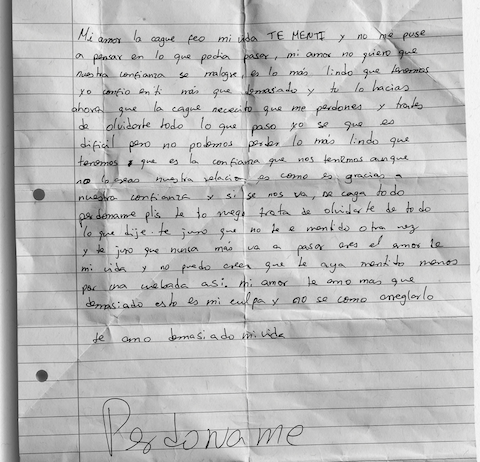 Mi amor la cague feo mi vida TE MENTI y no me puse
a pensar en lo que podia pasar, mi amor no quiero que
nuestra confianza se malogre, es lo más lindo que tenemos
yo confio en ti más que demasiado y tu lo hacias
ahora que la cague necesito que me perdones y trates
de olvidarte todo lo que paso yo se que es
dificil pero no podemos perder lo más lindo que
tenemos, que es la confianza que nos tenemos aunque
no lo creas nuestra relacion es como es gracias a
nuestra confianza y si se nos va, se caga todo
perdoname plis te lo ruego trata de olvidarte de todo
lo que dije. te juro que no te e mentido otra vez
y te juro que nunca más va a pasar eres el amor de
mi vida y no puedo creer que te aya mentido menos
por una webada asi. mi amor te amo mas que
demasiado esto es mi culpa y no se como arreglarlo
te amo demasiado mi vida
Perdoname